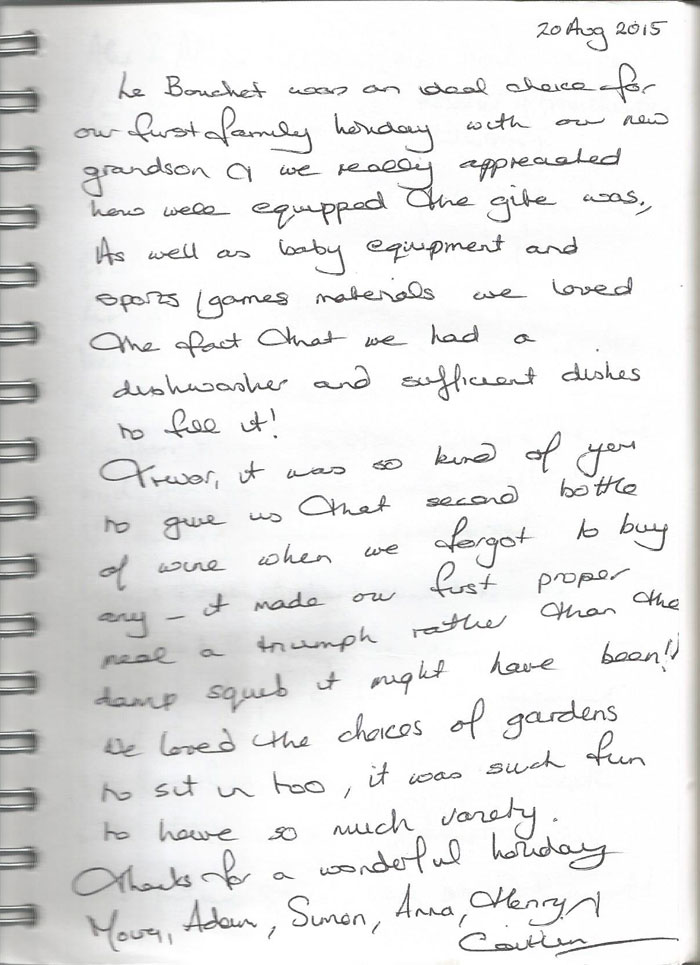 20 Aug 2015
Le Bouchet was an ideal choice for
our first family holiday with our new
grandson & we really appreciated
how well equipped the gite was.,
As well as baby equipment and
sports/games materials we loved
the fact that we had a
dishwasher and sufficient dishes
to fill it!
Trevor, it was so kind of you
to give us that second bottle
of wine when we forgot to buy
any – it made our first proper
meal a triumph rather than the
damp squib it might have been!!
We loved the choices of gardens
to sit in too, it was such fun
to have so much variety.
Thanks for a wonderful holiday
Adam, Simon, Anna, Henry &
Caitlin